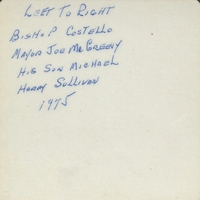 LEFT TO RIGHT
BISHOP COSTELLO
MAYOR JOE McGREEVY
HIS SON MICHAEL
HARRY SULLIVAN
1975